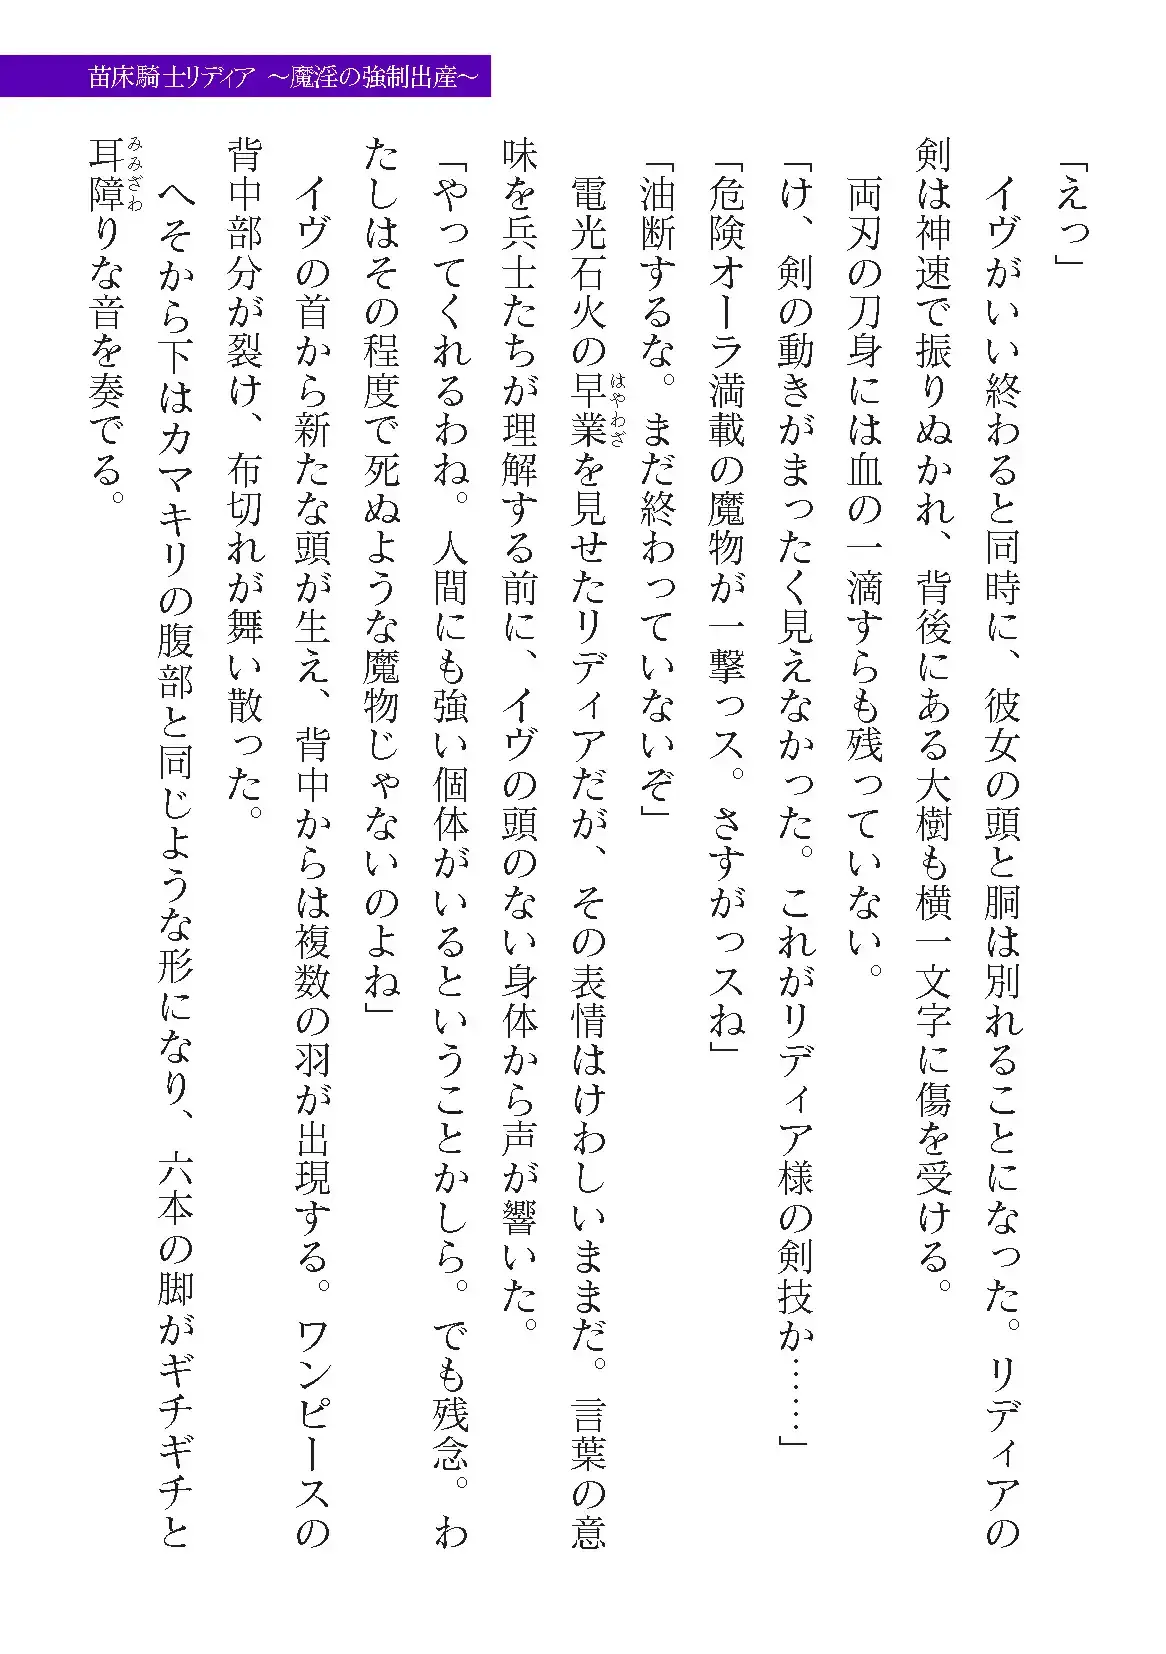 苗床騎士リディア ～魔淫の強制出産～
「えっ」
　イヴがいい終わると同時に、彼女の頭と胴は別れることになった。リディアの
剣は神速で振りぬかれ、背後にある大樹も横一文字に傷を受ける。
　両刃の刀身には血の一滴すらも残っていない。
「け、剣の動きがまったく見えなかった。これがリディア様の剣技か……」
「危険オーラ満載の魔物が一撃っス。さすがっスね」
「油断するな。まだ終わっていないぞ」
　電光石火の早業はやわざを見せたリディアだが、その表情はけわしいままだ。言葉の意
味を兵士たちが理解する前に、イヴの頭のない身体から声が響いた。
「やってくれるわね。人間にも強い個体がいるということかしら。でも残念。わ
たしはその程度で死ぬような魔物じゃないのよね」
　イヴの首から新たな頭が生え、背中からは複数の羽が出現する。ワンピースの
背中部分が裂け、布切れが舞い散った。
　へそから下はカマキリの腹部と同じような形になり、六本の脚がギチギチと
耳障みみざわりな音を奏でる。